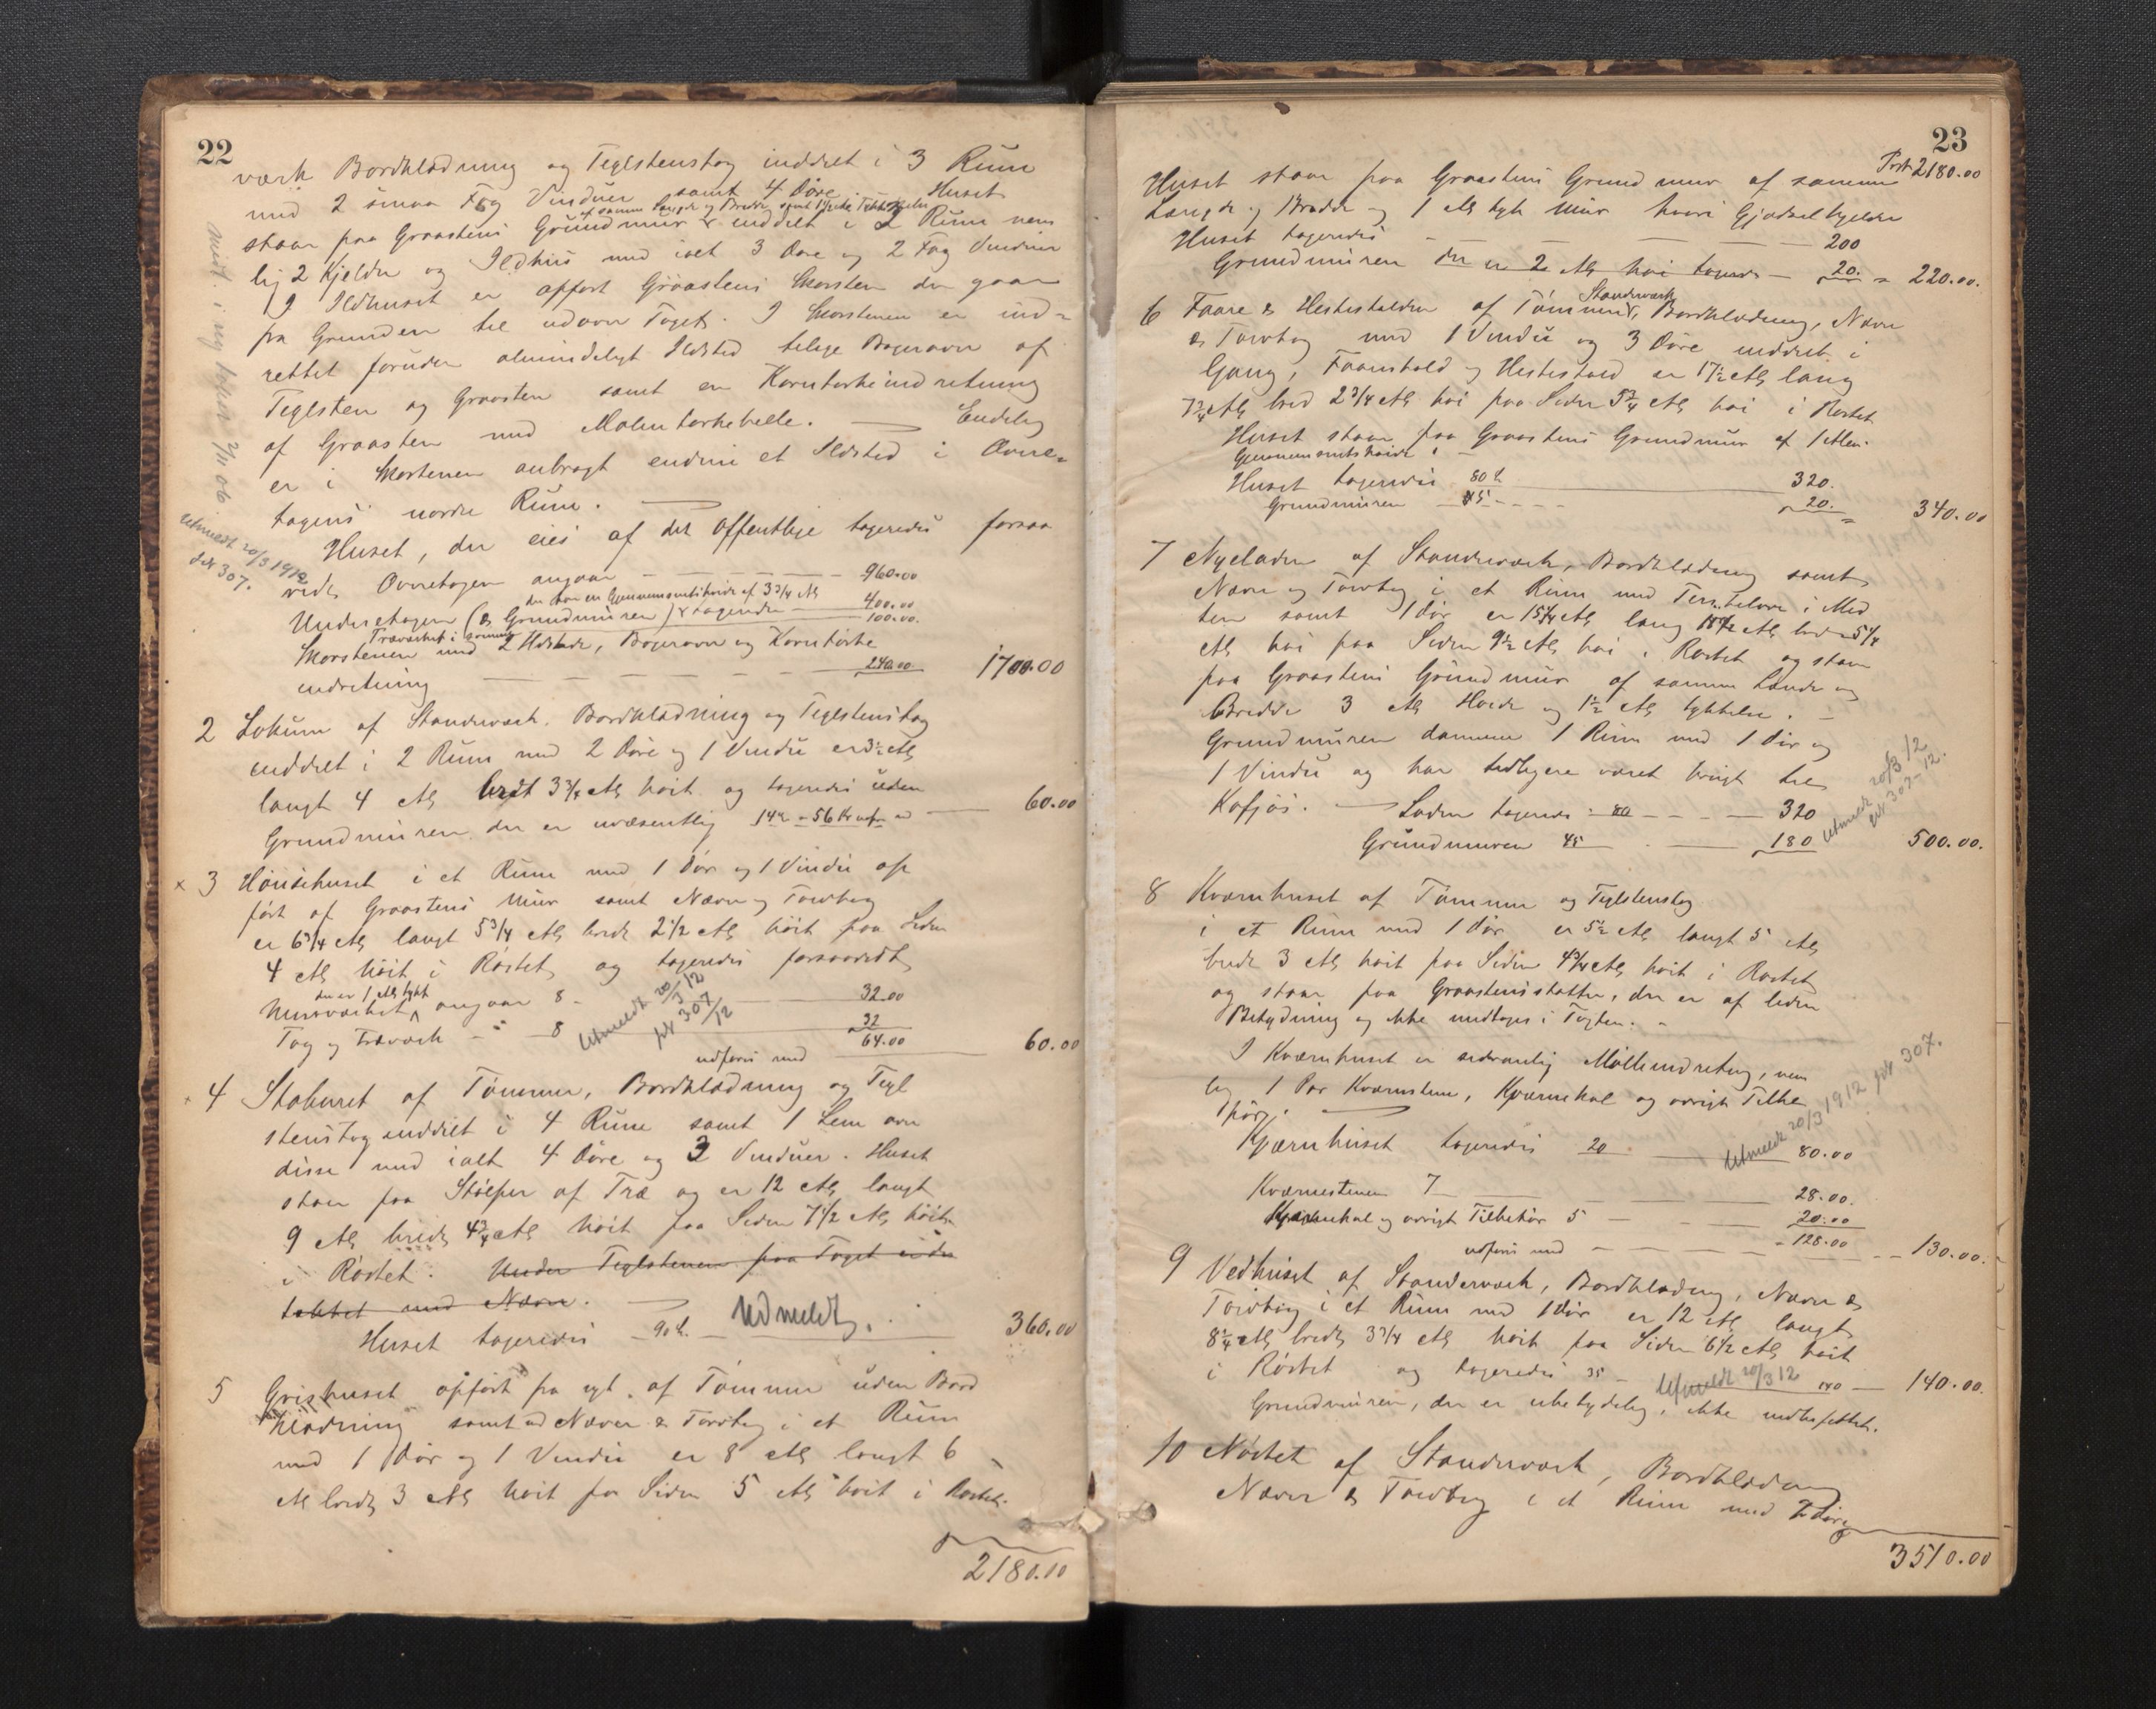 22
værk Bordklædning og Teglstenstag inddelt i 3 Rum
med 2 smaa Fag Vinduer samt 4 Døre Huset
af samme Længde og Bredde samt 1½ Al Tykkelse
staar paa Graastens Grundmur inddelt i 3 Rum nem
lig 2 Kjeldre og Ildhus med ialt 3 Døre og 2 Fag Vinduer
I Ildhuset er opført Graastens Skorsten der gaar
fra Grunden til udover Taget. I Skorstenen er ind=
rettet foruden almindeligt Ildsted tillige Bagerovn af
Teglsten og Graasten samt en Korntørkeindretning
af Graasten med Malmtørkehelle. Endelig
er i Skorstenen anbragt endnu et Ildsted i Overe=
tagens nordre Rum.
Huset, der eies af det Offentlige tageredes forsaa
vidt Overetagen angaar 960.00
der har en Gjennemsnitshøide af 3 3/4 Al
Underetagen (& Grundmuren) tageredes 400.00
Træværket i samme 100.00.
Skorstenen med 2 Ildsteder, Bagerovn og Korntørke
indretning 240.00 1700.00
mdt. i ny takst 2/11 06
Utmeldt 20/3 1912
pkt 307.
2 Lokum af Standerværk, Bordklædning og Teglstenstag
inddelt i 2 Rum med 2 Døre og 1 Vindu er 3½ Al
langt 4 Al bredt 3 3/4 Al høit og tageredes uden
Grundmuren der er uvæsentlig 14 - 56 Kr 60.00
x 3 Hønsehuset i et Rum med 1 Dør og 1 Vindu op
ført af Graastens Mur samt Næver og Torvtag
er 6 3/4 Al langt 5 3/4 Al bredt 2 1/2 Al høit paa Siden
4 Al høit i Røstet og tageredes forsaavidt
der er 1 Al tykt
Murværket angaar 8 - 32.00
Tag og Træværk - 8 32
64.00
udføres med 60.00
Utmeldt 20/3 12
pkt 307/12
x 4 Staburet af Tømmer, Bordklædning og Tegl
stenstag inddelt i 4 Rum samt 1 Lem over
disse med ialt 4 Døre og 3 Vinduer. Huset
staar paa Stolper af Træ og er 12 Al langt
9 Al bredt 4 3/4 Al høit paa Siden 7 1/2 Al høit
i Røstet. Under Teglstenen paa Taget er der
tækket med Næver.
Huset tageredes 90 Udmeldt. 360.00
5 Grishuset opført fra nyt af Tømmer uden Bord
klædning samt Næver & Torvtag i et Rum
med 1 Dør og 1 Vindu er 8 Al langt 6
Al bredt 3 Al høit paa Siden 5 Al høit i Røstet.
2180.00
23
Prt. 2180.00
Huset staar paa Graastens Grundmur af samme
Længde og Bredde og 1 Al tyk Mur hvori Gjødselkjelder
Huset tageredes 200
Grundmuren der er 2 Al høi tageredes 20. = 220.00.
6 Faare & Hestestalden af Tømmer, Standerværk Bordklædning, Næver
& Torvtag med 1 Vindu og 3 Døre inddelt i
Gang, Faarestald og Hestestald er 17½ Al lang
7 3/4 Al bred 2 3/4 Al høi paa Siden 5 3/4 Al høi i Røstet
Huset staar paa Graastens Grundmur af 1 Alen
Gjennemsnitshøide.
Huset tageredes 80 320.
Grundmuren 5 - 20. = 340.00
7 Nyeladen af Standerværk, Bordklædning samt
Næver og Torvtag i et Rum med Tærskelove i Mid
ten samt 1 Dør er 15 1/4 Al lang Al bred 5 1/4
Al høi paa Siden 9½ Al høi i Røstet og staar
paa Graastens Grundmur af samme Længde og
Bredde 3 Al Høide og 1½ Al tykkelse.
Grundmuren danner 1 Rum med 1 Dør og
1 Vindu og har tidligere været brugt til
Kofjøs. Laden tageredes 80 320
Grundmuren 45 180 500.00.
Utmeldt 20/3 12
pkt 307-12.
8 Kværnhuset af Tømmer og Teglstenstag
i et Rum med 1 Dør er 5½ Al langt 5 Al
bredt 3 Al høit paa Siden 4 3/4 Al høit i Røstet
og staar paa Graastensstøtter, der er af liden
Betydning og ikke medtages i Taxten.
I Kværnhuset er sedvanlig Mølleindretning, nem
lig 1 Par Kværnstene, Kværnekal og øvrigt Tilbe
hør.
Kværnhuset tageredes 20 80.00
Utmeldt 20/3 1912 pkt 307.
Kværnestenen 7 28.00.
Kværnekal og øvrigt Tilbehør 5 20.00
128.00
udføres med 130.00.
9 Vedhuset af Standerværk, Bordklædning, Næver &
Torvtag i et Rum med 1 Dør er 12 Al langt
8 1/4 Al bredt 3 3/4 Al høit paa Siden 6 1/2 Al høit
i Røstet og tageredes 35 Utmeldt 20/3 12 140 140.00.
Grundmuren, der er ubetydelig, ikke medbefattet.
10 Nøstet af Standerværk, Bordklædning
Næver & Torvtag i et Rum med 2 Døre
3510.00